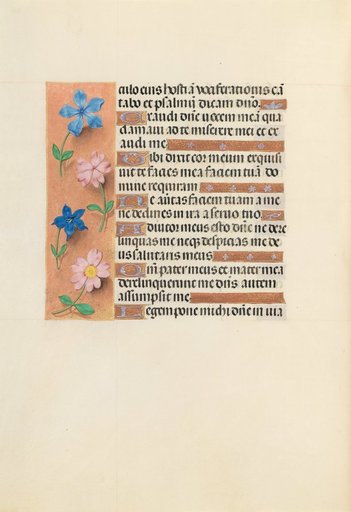 culo eius hostiā vociferationis cā
tabo et psalmū dicam dn̄o.
Exaudi dn̄e vocem meā qua
clamavi ad te miserere mei et ex
audi me
Tibi dixit cor meum exquisi
vit te facies mea faciem tuā do
mine requiram
Ne av̄tas faciem tuam a me
ne declines in ira a servo tuo
Adiutor meus esto dn̄e ne dere
linquas me neqꝫ despicias me de
us salutaris meus
Qm̄ pater meus et mater mea
dereliquerunt me dn̄s autem
assumpsit me
Legem pone michi dn̄e in via